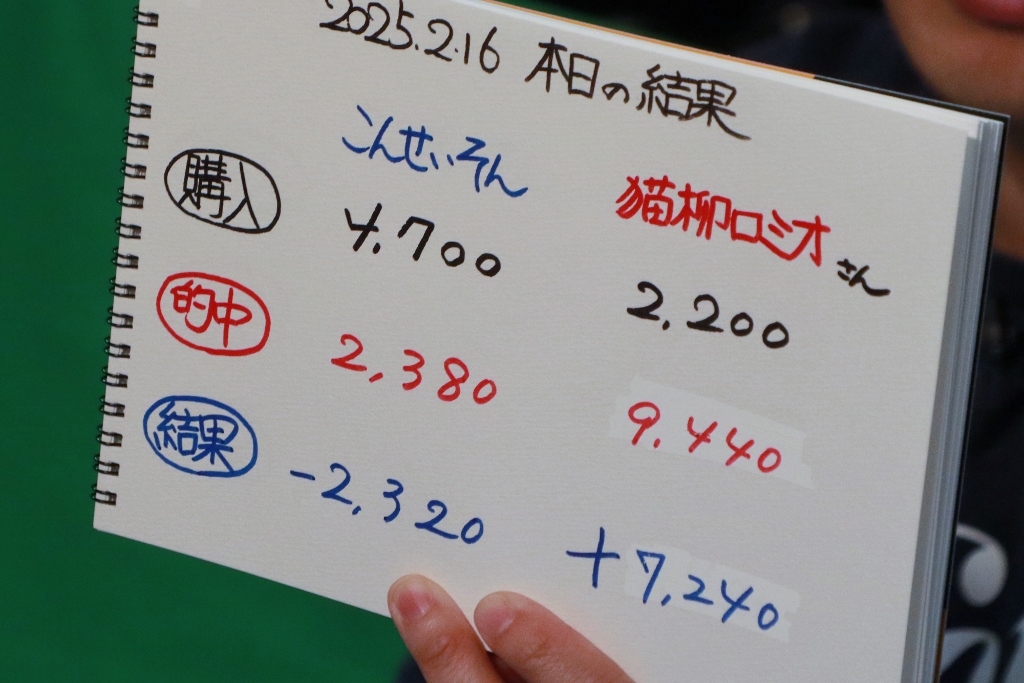 2025.2.16 本日の結果
こんせいそん 猫柳ロミオさん
購入 4,700 2,200
的中 2,380 9,440
結果 -2,320 +7,240